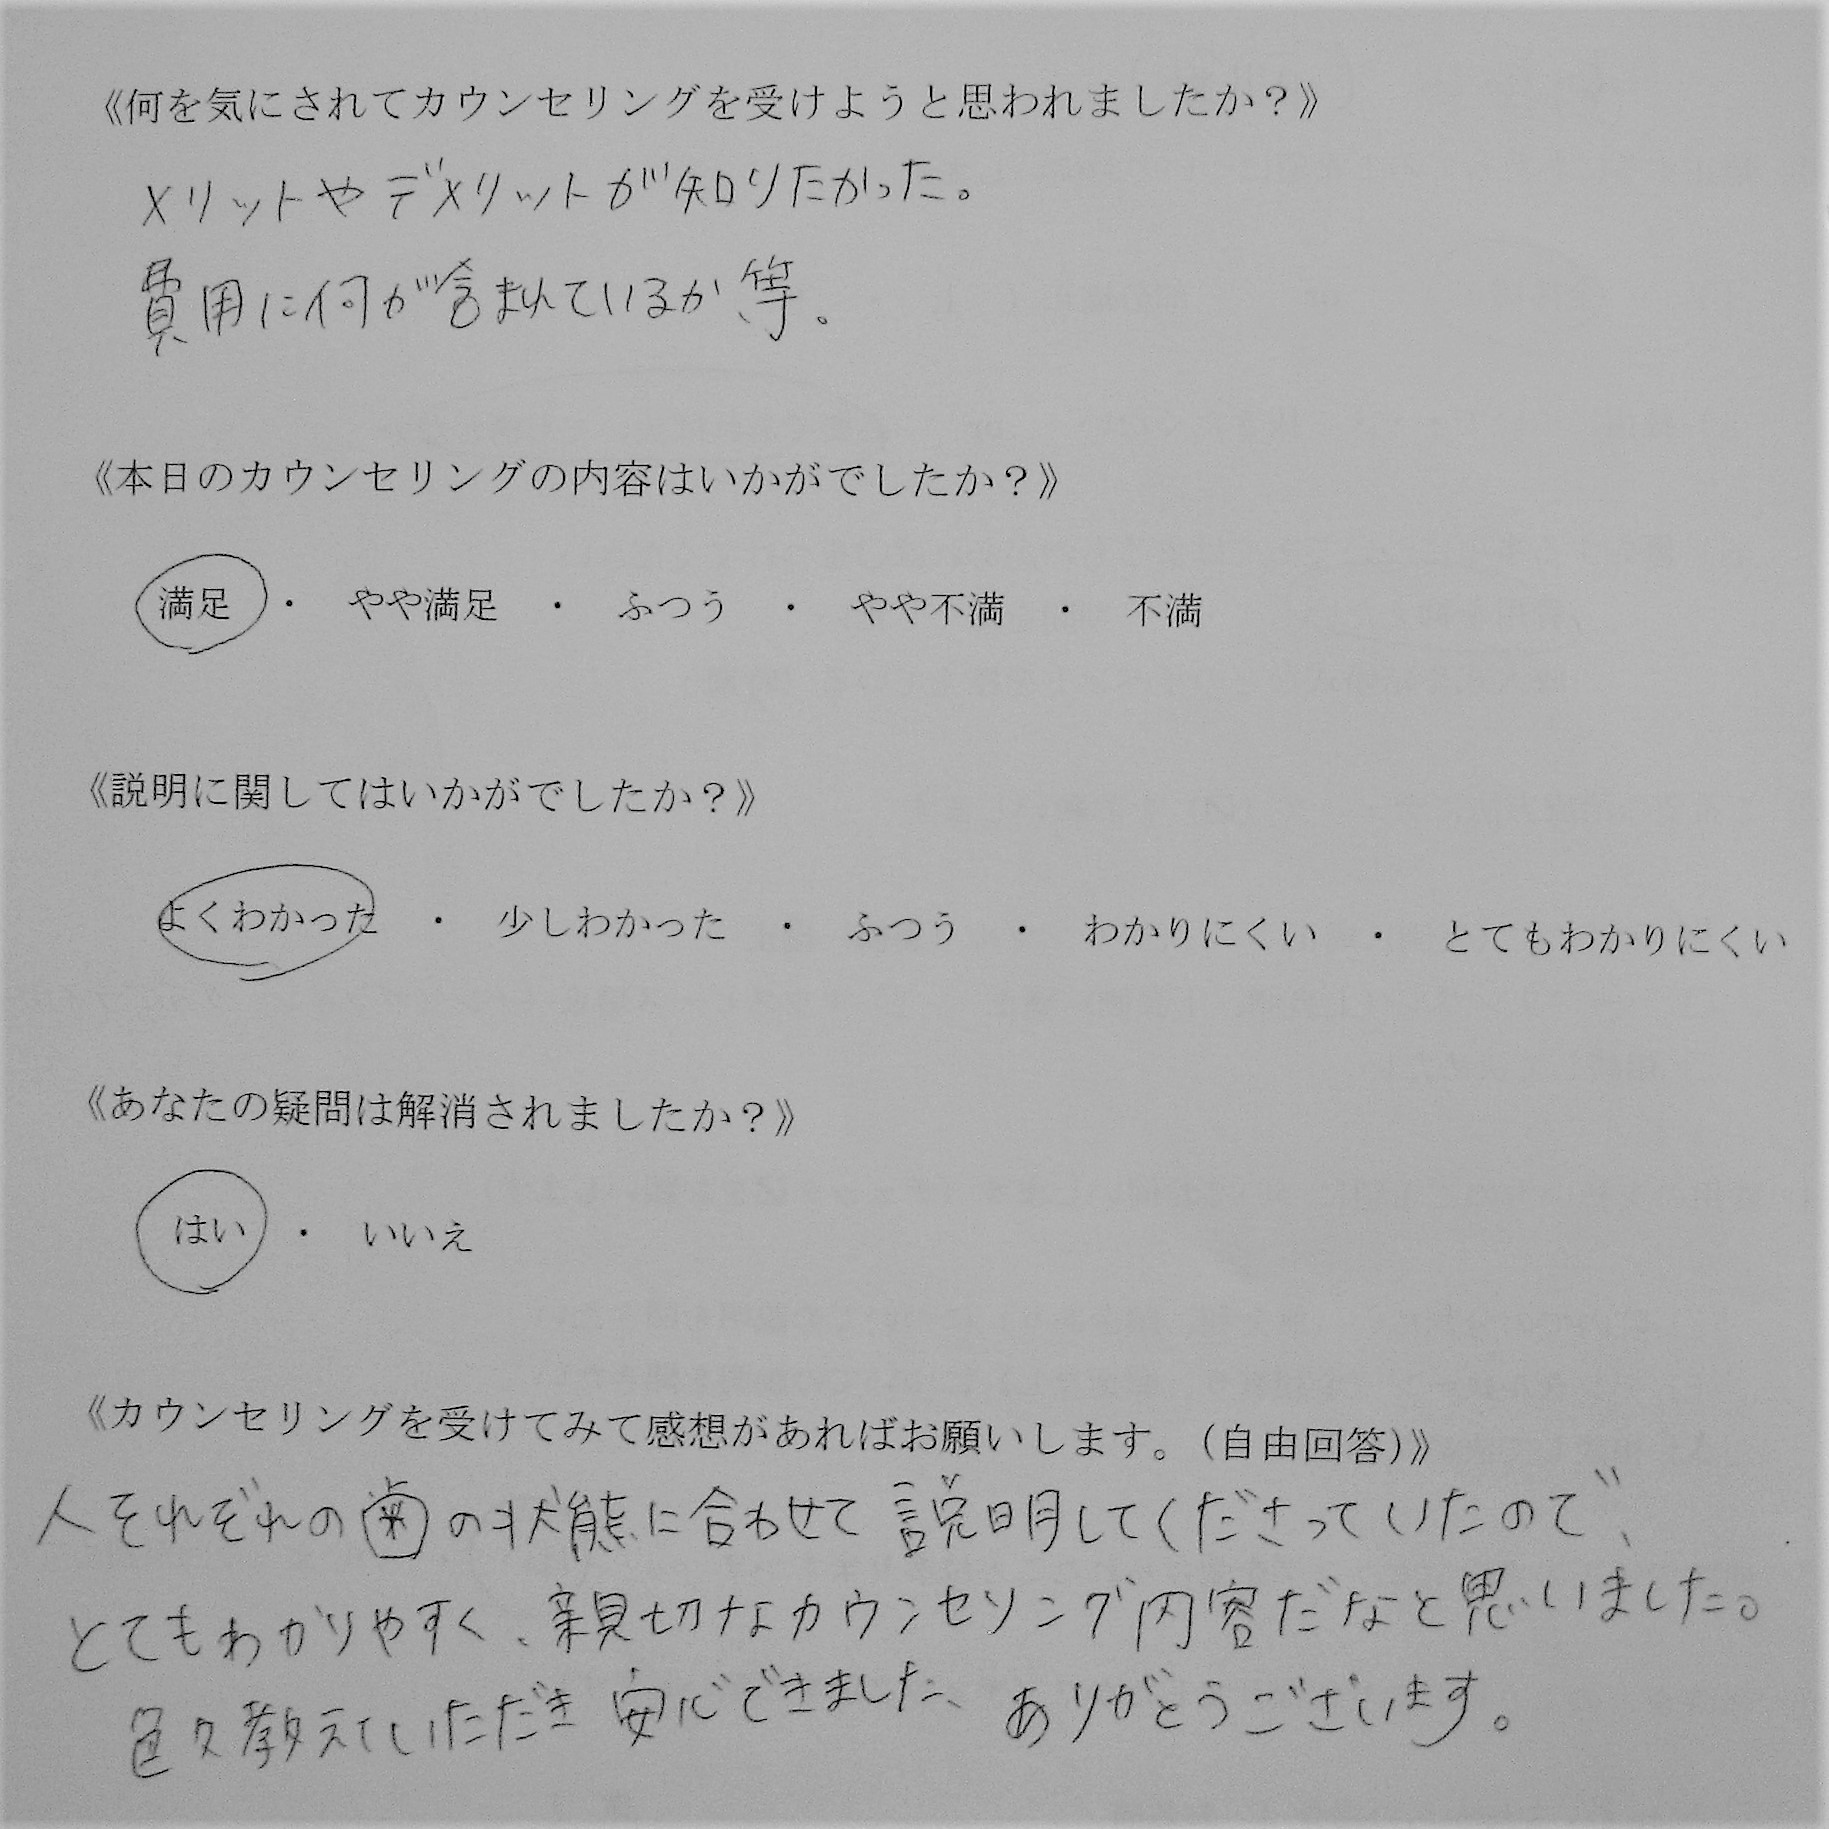 《何を気にされてカウンセリングを受けようと思われましたか？》
メリットやデメリットが知りたかった。
費用に何が含まれているか等。
《本日のカウンセリングの内容はいかがでしたか？》
満足 ・ やや満足 ・ ふつう ・ やや不満 ・ 不満
《説明に関してはいかがでしたか？》
よくわかった ・ 少しわかった ・ ふつう ・ わかりにくい ・ とてもわかりにくい
《あなたの疑問は解消されましたか？》
はい ・ いいえ
《カウンセリングを受けてみて感想があればお願いします。（自由回答）》
人それぞれの歯の状態に合わせて説明してくださっていたので、
とてもわかりやすく、親切なカウンセリング内容だなと思いました。
色々教えていただき安心できました、ありがとうございます。